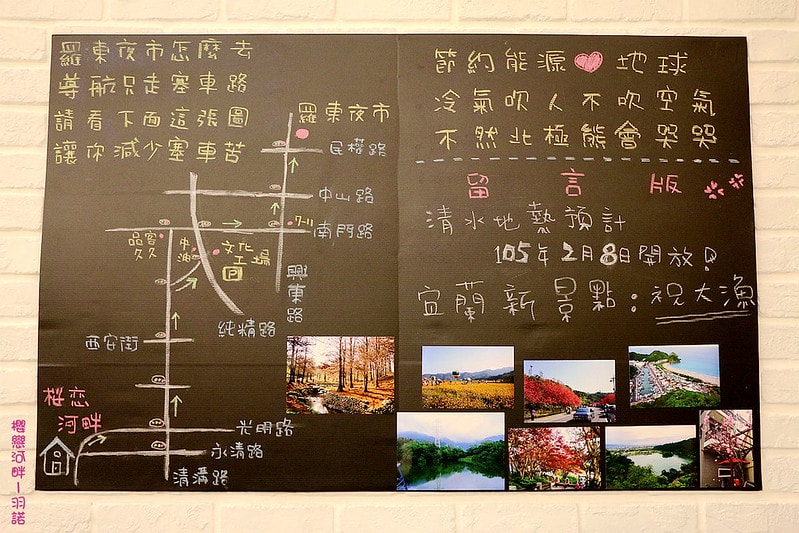 羅東夜市怎麼去
導航只走塞車路
請看下面這張圖
讓你減少塞車苦
羅東夜市
民權路
中山路
南門路
7-11
品客久久
中油
文化工場
P
興東路
純精路
西安街
桜恋河畔
光明路
永清路
清溝路
節約能源 地球
冷氣吹人不吹空氣
不然北極熊會哭哭
留言版
清水地熱預計
105年2月8日開放!
宜蘭新景點:祝大漁
櫻戀河畔－羽諾